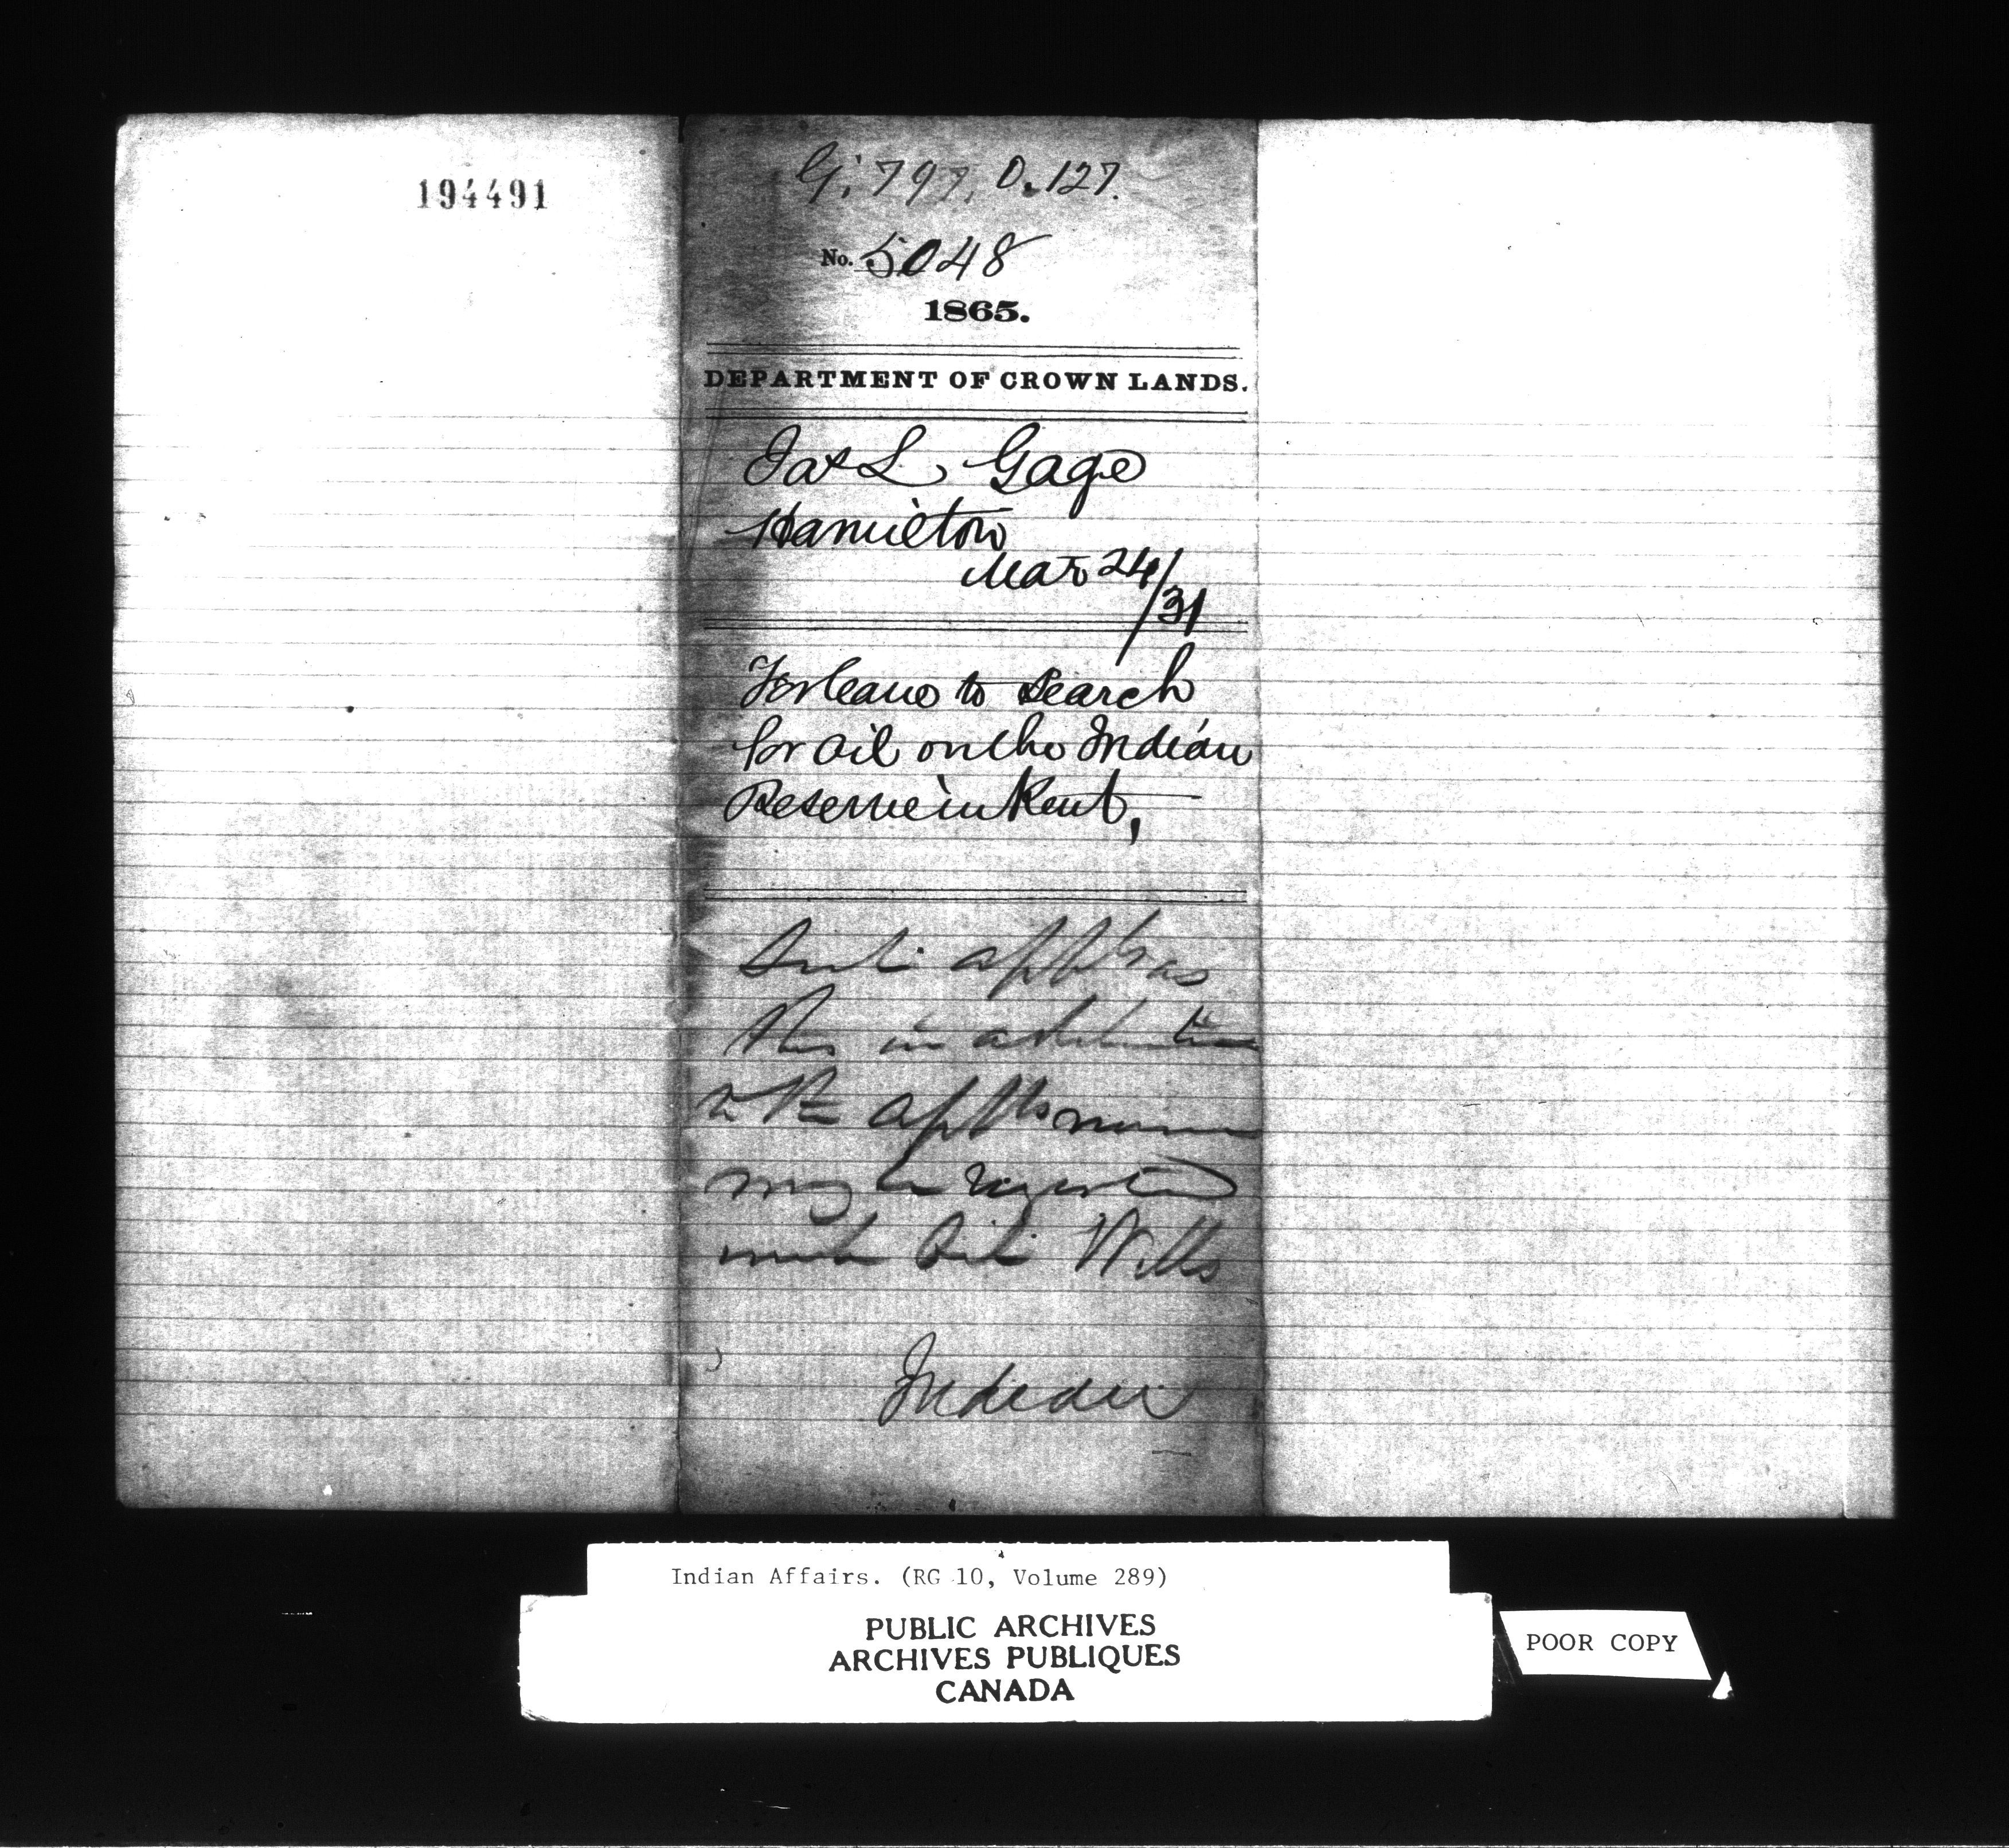 194491
G. 797. D. 127.
No. 5048
1865.
DEPARTMENT OF CROWN LANDS.
Jas L Gage
Hamilton
Mar 24/
/31
For leave to search
for oil on the Indian
Reserve in Kent,
this in
may be
Oil Wells
Indian
Indian Affairs. (RG 10, Volume 289)
PUBLIC ARCHIVES
ARCHIVES PUBLIQUES
CANADA
POOR COPY